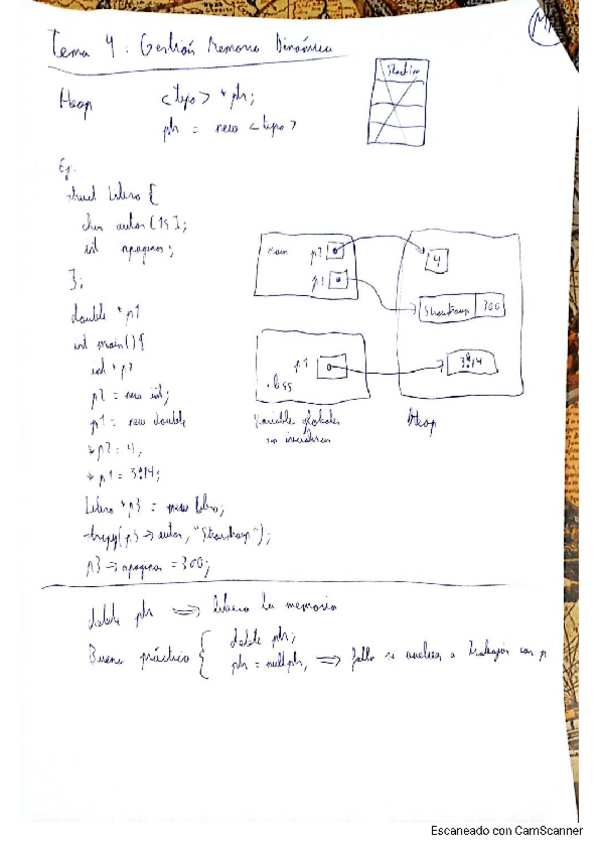 Tema 4: Gestión Memoria Dinámica
Heap
<tipo> * ptr;
ptr = new <tipo>
Ej.
struct Libro {
char autor[15];
int npaginas;
};
double *p1
int main(){
int *p2
p2 = new int;
p1 = new double
*p2 = 4;
*p1 = 3.14;
Libro *p3 = new Libro;
strcpy(p3->autor, "Stroustroup");
p3->npaginas = 300;
main
p2
p3
4
300
p1
.bss
3.14
Variables globales
sin inicializar
Heap
delete ptr ⇒ libera la memoria
Buena práctica {
delete ptr;
ptr = nullptr; ⇒ falla si vuelves a trabajar con p
Escaneado con CamScanner